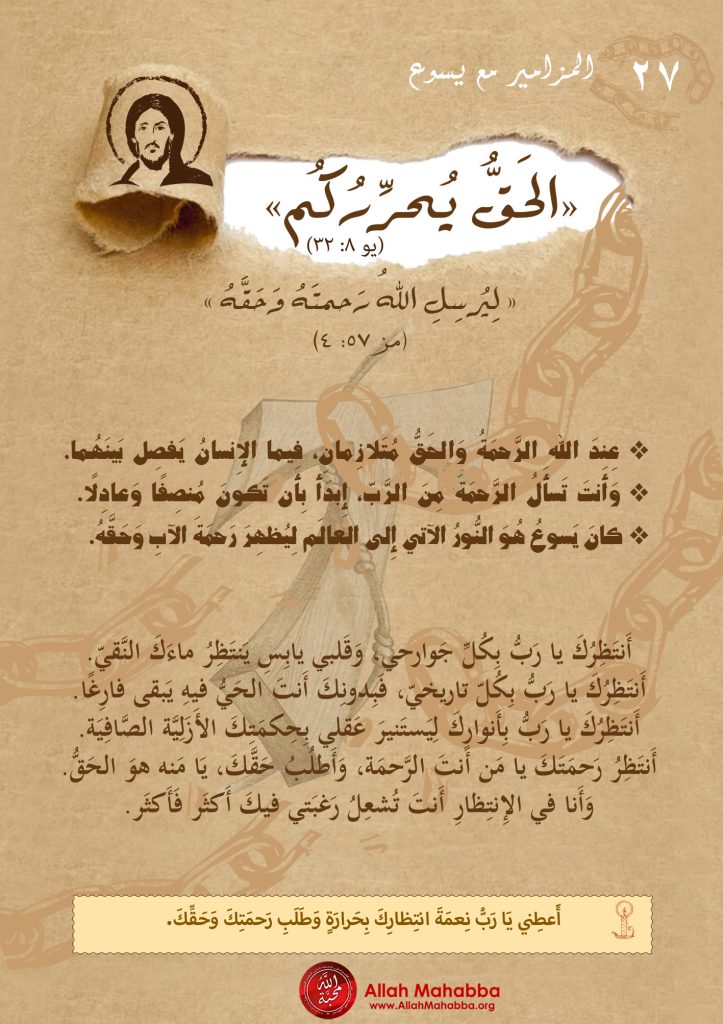 ٢٧ المزامير مع يسوع
«الحَقُّ يُحرِّرُكُم»
(يو ٨: ٣٢)
« لِيُرسِلِ اللهُ رَحمتَهُ وَحَقَّهُ »
(مز ٥٧: ٤)
❖ عِندَ اللهِ الرَّحمَةُ وَالحَقُّ مُتَلازِمان، فِيما الإِنسانُ يَفصِل بَينَهُما.
❖ وَأَنتَ تَسأَلُ الرَّحمَةَ مِنَ الرَّبّ، إِبدَأ بِأَن تَكونَ مُنصِفًا وَعادِلًا.
❖ كانَ يَسوعُ هُوَ النُّورُ الآتي إِلى العالَم لِيُظهِرَ رَحمَةَ الآبِ وَحَقَّهُ.
أَنتَظِرُكَ يا رَبُّ بِكُلِّ جَوارحي، وَقَلبي يابِس يَنتَظِرُ ماءَكَ النَّقيّ.
أَنتَظِرُكَ يا رَبُّ بِكُلّ تاريخيّ، فَبِدونِكَ أَنتَ الحَيُّ فيهِ يَبقى فارِغًا.
أَنتَظِرُكَ يا رَبُّ بِأَنوارِكَ لِيَستَنيرَ عَقلي بِحِكمَتِكَ الأَزَلِيَّة الصَّافِيَة.
أَنتَظِرُ رَحمَتَكَ يا مَن أَنتَ الرَّحمَة، وَأَطلُبُ حَقَّكَ، يَا مَنه هوَ الحَقُّ.
وَأَنا في الإِنتِظارِ أَنتَ تُشعِلُ رَغبَتي فيكَ أَكثَر فَأَكثَر.
أَعطِني يَا رَبُّ نِعمَةَ انتِظارِكَ بِحَرارَةٍ وَطَلَبِ رَحمَتِكَ وَحَقِّكَ.
الله محبة
Allah Mahabba
www.AllahMahabba.org